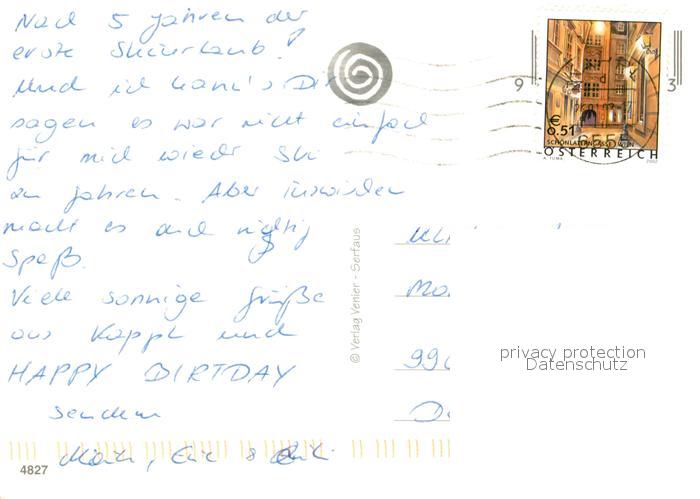 Nach 5 Jahren der
erste Skiurlaub!
Und ich kann's Dir
sagen es war nicht einfach
für mich wieder Ski
zu fahren. Aber inzwischen
macht es auch richtig
Spaß.
Viele sonnige Grüße
aus Kappl und
HAPPY BIRTDAY
senden
4827
© Verlag Venier - Serfaus
9 3
€
0.51
SCHÖNLATERNGASSE WIEN
ÖSTERREICH
A. TUMA 2002
990
privacy protection
Datenschutz